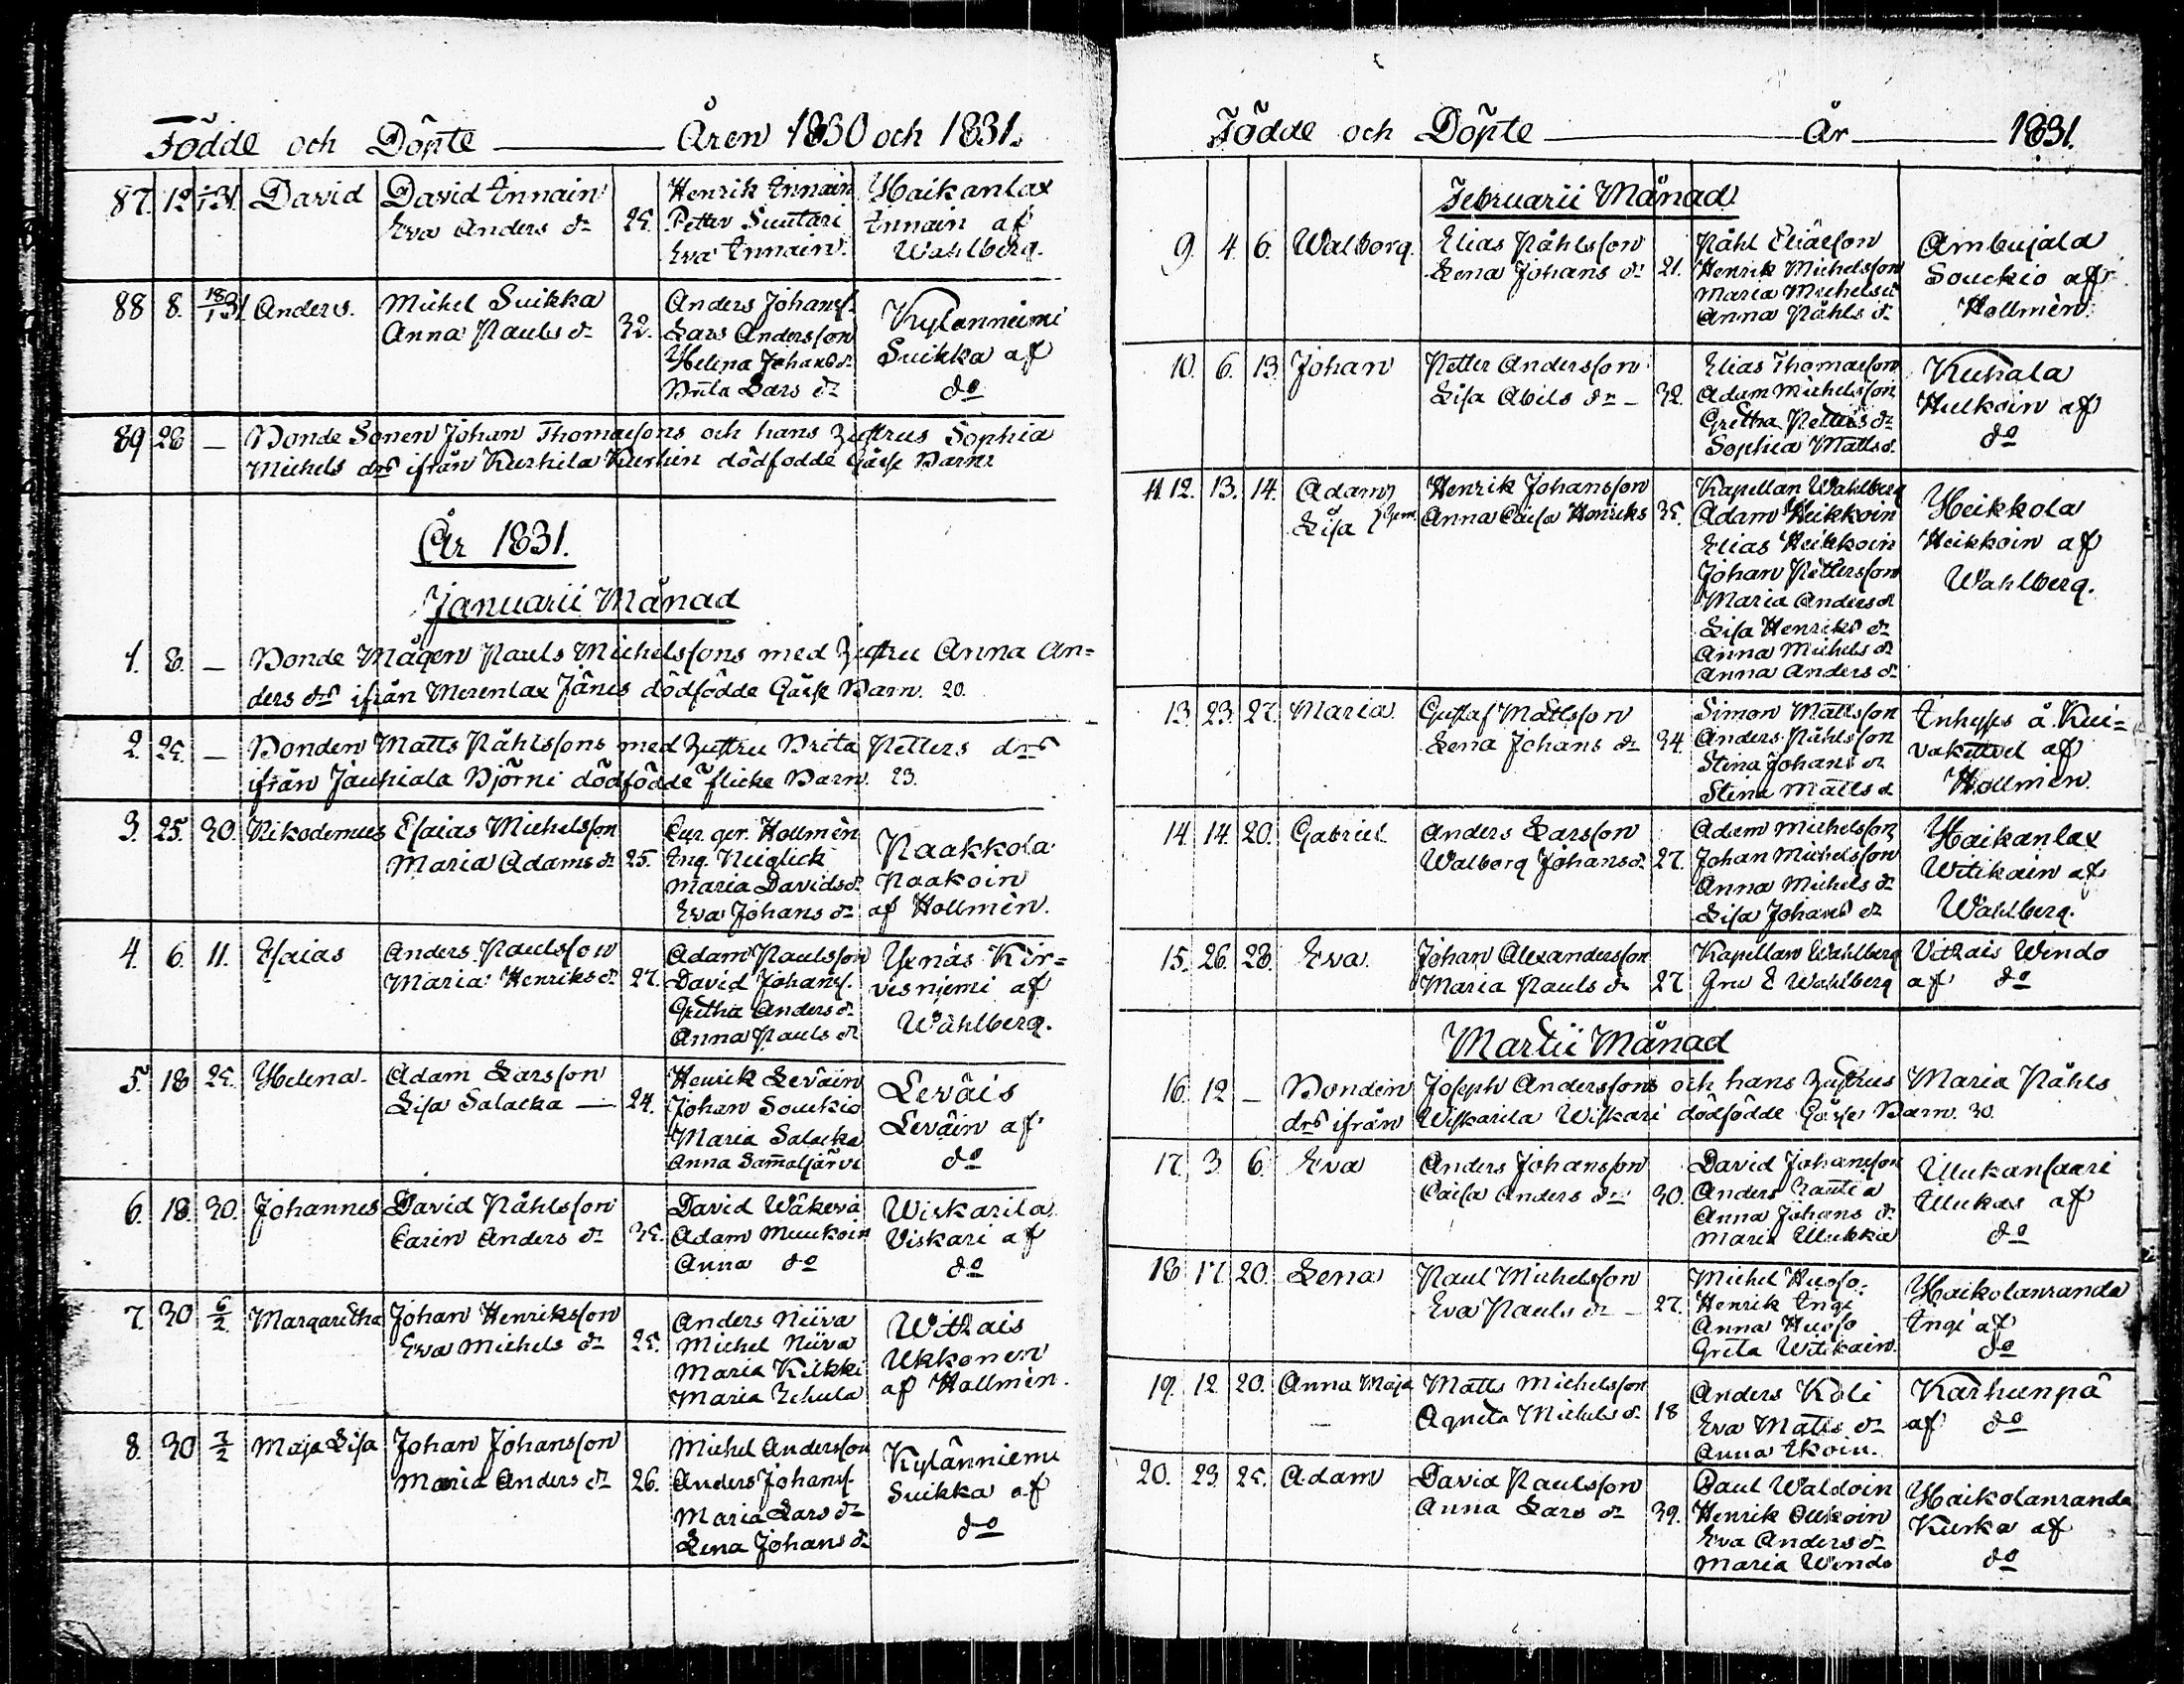 Födde och Döpte Åren 1830 och 1831.
87. 12 David David Innain Henrik Innain Haikanlax
Eva Anders dr 25. Petter Suutari Innain af
Eva Innain. Wahlberg.
88 8. Anders. Michel Suikka Anders Johanss. Kylänniemi
Anna Pauls dr 32. Lars Andersson Suikka af
Helena Johans dr do
Brita Lars dr
89 28 — Bonde Sonen Johan Thomassons och hans hustrus Sophia
Michels drs ifrån Kurhila Kurhin dödfödde Gåsse Barn
År 1831.
Januarii Månad
1. 8. — Bonde Mågen Pauls Michelssons med hustru Anna An=
ders drs ifrån Merenlax Jänes dödfödde Gåsse Barn. 20.
2. 25. — Bonden Matts Påhlssons med hustru Brita Petters drs
ifrån Jauhiala Björni dödfödde flicke Barn. 23.
3. 25. 30. Nikodemus Esaias Michelsson Cur. ger. Hollmén Naakkola
Maria Adams dr 25. Ing. Neiglick Naakoin
Maria Davids dr af Hollmén.
Eva Johans dr
4. 6. 11. Esaias Anders Paulsson Adam Paulsson Yxnäs Kir=
Maria Henriks dr 27. David Johanss. vesniemi af
Gretha Anders dr Wahlberg.
Anna Pauls dr
5. 18 25. Helena Adam Larsson Henrik Leväin Leväis
Lisa Salacka — 24. Johan Souckio Leväin af
Maria Salacka do
Anna Sam̄aljärvi
6. 18. 30. Johannes David Påhlsson David Wäkevä Wiskarila
Carin Anders dr 35. Adam Muukoin Viskari af
Anna do do
7. 30 6/2 Margaretha Johan Henriksson Anders Niiva Witsais
Eva Michels dr 25. Michel Niiva Ukkonen
Maria Kikki af Hollmén.
Maria
8. 30 7/2 Maja Lisa Johan Johansson Michel Andersson Kylänniemi
Maria Anders dr 26. Anders Johanss. Suikka af
Maria Lars dr do
Lena Johans dr
Födde och Döpte År 1831.
Februarii Månad
9. 4. 6. Walborg. Elias Påhlsson Påhl Eliasson Ambujala
Lena Johans dr 21. Henrik Michelsson Souckio af
Maria Michels dr Hollmén.
Anna Påhls dr
10. 6. 13. Johan Petter Andersson Elias Thomasson Kuhala
Lisa Abels dr — 32. Adam Michelsson Hulkoin af
Gretha Petters dr do
Sophia Matts d.
11. 12. 13. 14. Adam Henrik Johansson Kapellan Wahlberg Heikkola
Lisa Anna Caisa Henriks 35. Adam Heikkoin Heikkoin af
Elias Heikkoin Wahlberg.
Johan Pettersson
Maria Anders dr
Lisa Henriks dr
Anna Michels dr
Anna Anders dr
13. 23. 27. Maria. Gustaf Mattsson Simon Mattsson Inhyss å Kui=
Lena Johans dr 34. Anders Påhlsson af
Stina Johans dr Hollmén.
Stina Matts d
14. 14. 20. Gabriel Anders Larsson Adam Michelsson Haikanlax
Walborg Johans d. 27. Johan Michelsson Witikain af
Anna Michels dr Wahlberg.
Lisa Johans dr
15. 26. 28. Eva. Johan Alexandersson Kapellan Wahlberg Vitsais Windo
Maria Pauls dr 27 Fru E Wahlberg af do
Martii Månad
16. 12 — Bonden Joseph Anderssons och hans hustrus Maria Påhls
drs ifrån Wiskarila Wiskari dödfödde Gåsse Barn. 30.
17. 3 6. Eva Anders Johansson David Johansson Ulukansaari
Caisa Anders dr 30. Anders Ulukas af
Anna Johans dr do
Maria Ulukka
18 17. 20. Lena Paul Michelsson Michel Huoso. Haikolanranda
Eva Pauls dr — 27. Henrik Ingi Ingi af
Anna Huoso do
Greta Witikain.
19. 12. 20. Anna Maja Matts Michelsson Anders Koli Karhunpä
Agneta Michels d. 18 Eva Matts dr af do
Anna Ikoin.
20. 23 25. Adam David Paulsson Paul Waldoin Haikolanranda
Anna Lars dr 39. Henrik Olikoin Kurka af
Eva Anders dr do
Maria Windo